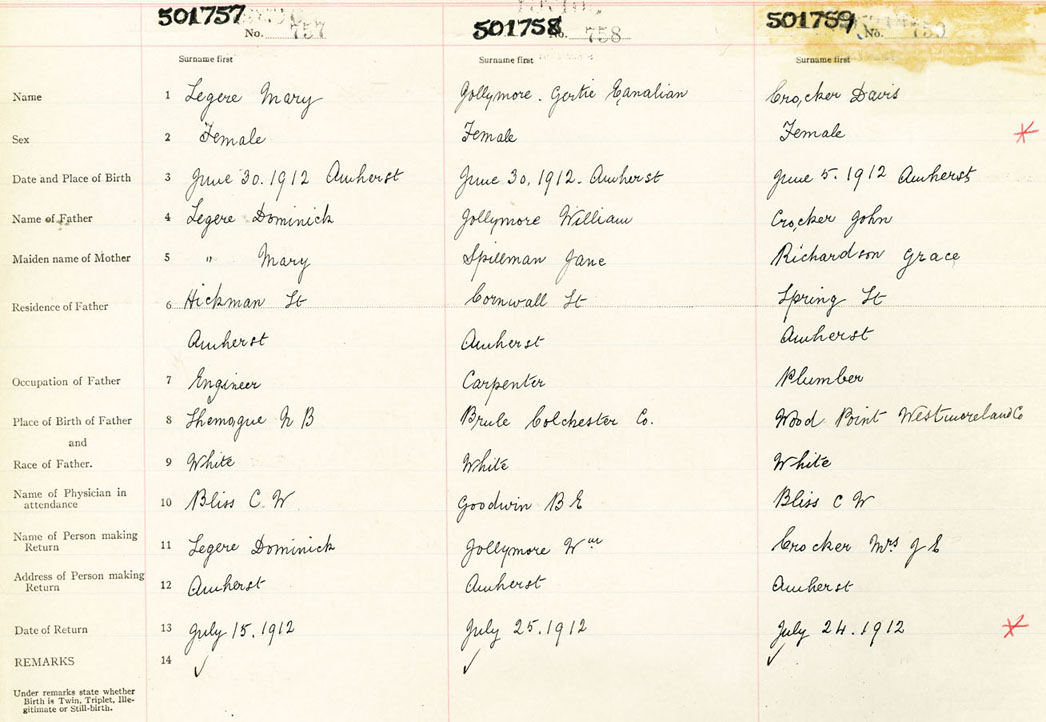 501757 501758 501759
No. 757 No. 758 No.
Surname first Surname first Surname first
Name 1 Legere Mary Jollymore. Gertie Canalian Crocker Davis
Sex 2 Female Female Female
Date and Place of Birth 3 June 30.1912 Amherst June 30, 1912. Amherst June 5.1912 Amherst
Name of Father 4 Legere Dominick Jollymore William Crocker John
Maiden name of Mother 5 " Mary Spillman Jane Richardson Grace
Residence of Father 6 Hickman St Cornwall St Spring St
Amherst Amherst Amherst
Occupation of Father 7 Engineer Carpenter Plumber
Place of Birth of Father 8 Shemogue N B Brule Colchester Co. Wood Point Westmoreland Co
and
Race of Father. 9 White White White
Name of Physician in
attendance 10 Bliss C. W Goodwin B E Bliss C W
Name of Person making
Return 11 Legere Dominick Jollymore Wm Crocker Mrs J E
Address of Person making
Return 12 Amherst Amherst Amherst
Date of Return 13 July 15.1912 July 25.1912 July 24.1912
REMARKS 14 ✓ ✓ ✓
Under remarks state whether
Birth is Twin, Triplet, Ille-
gitimate or Still-birth.